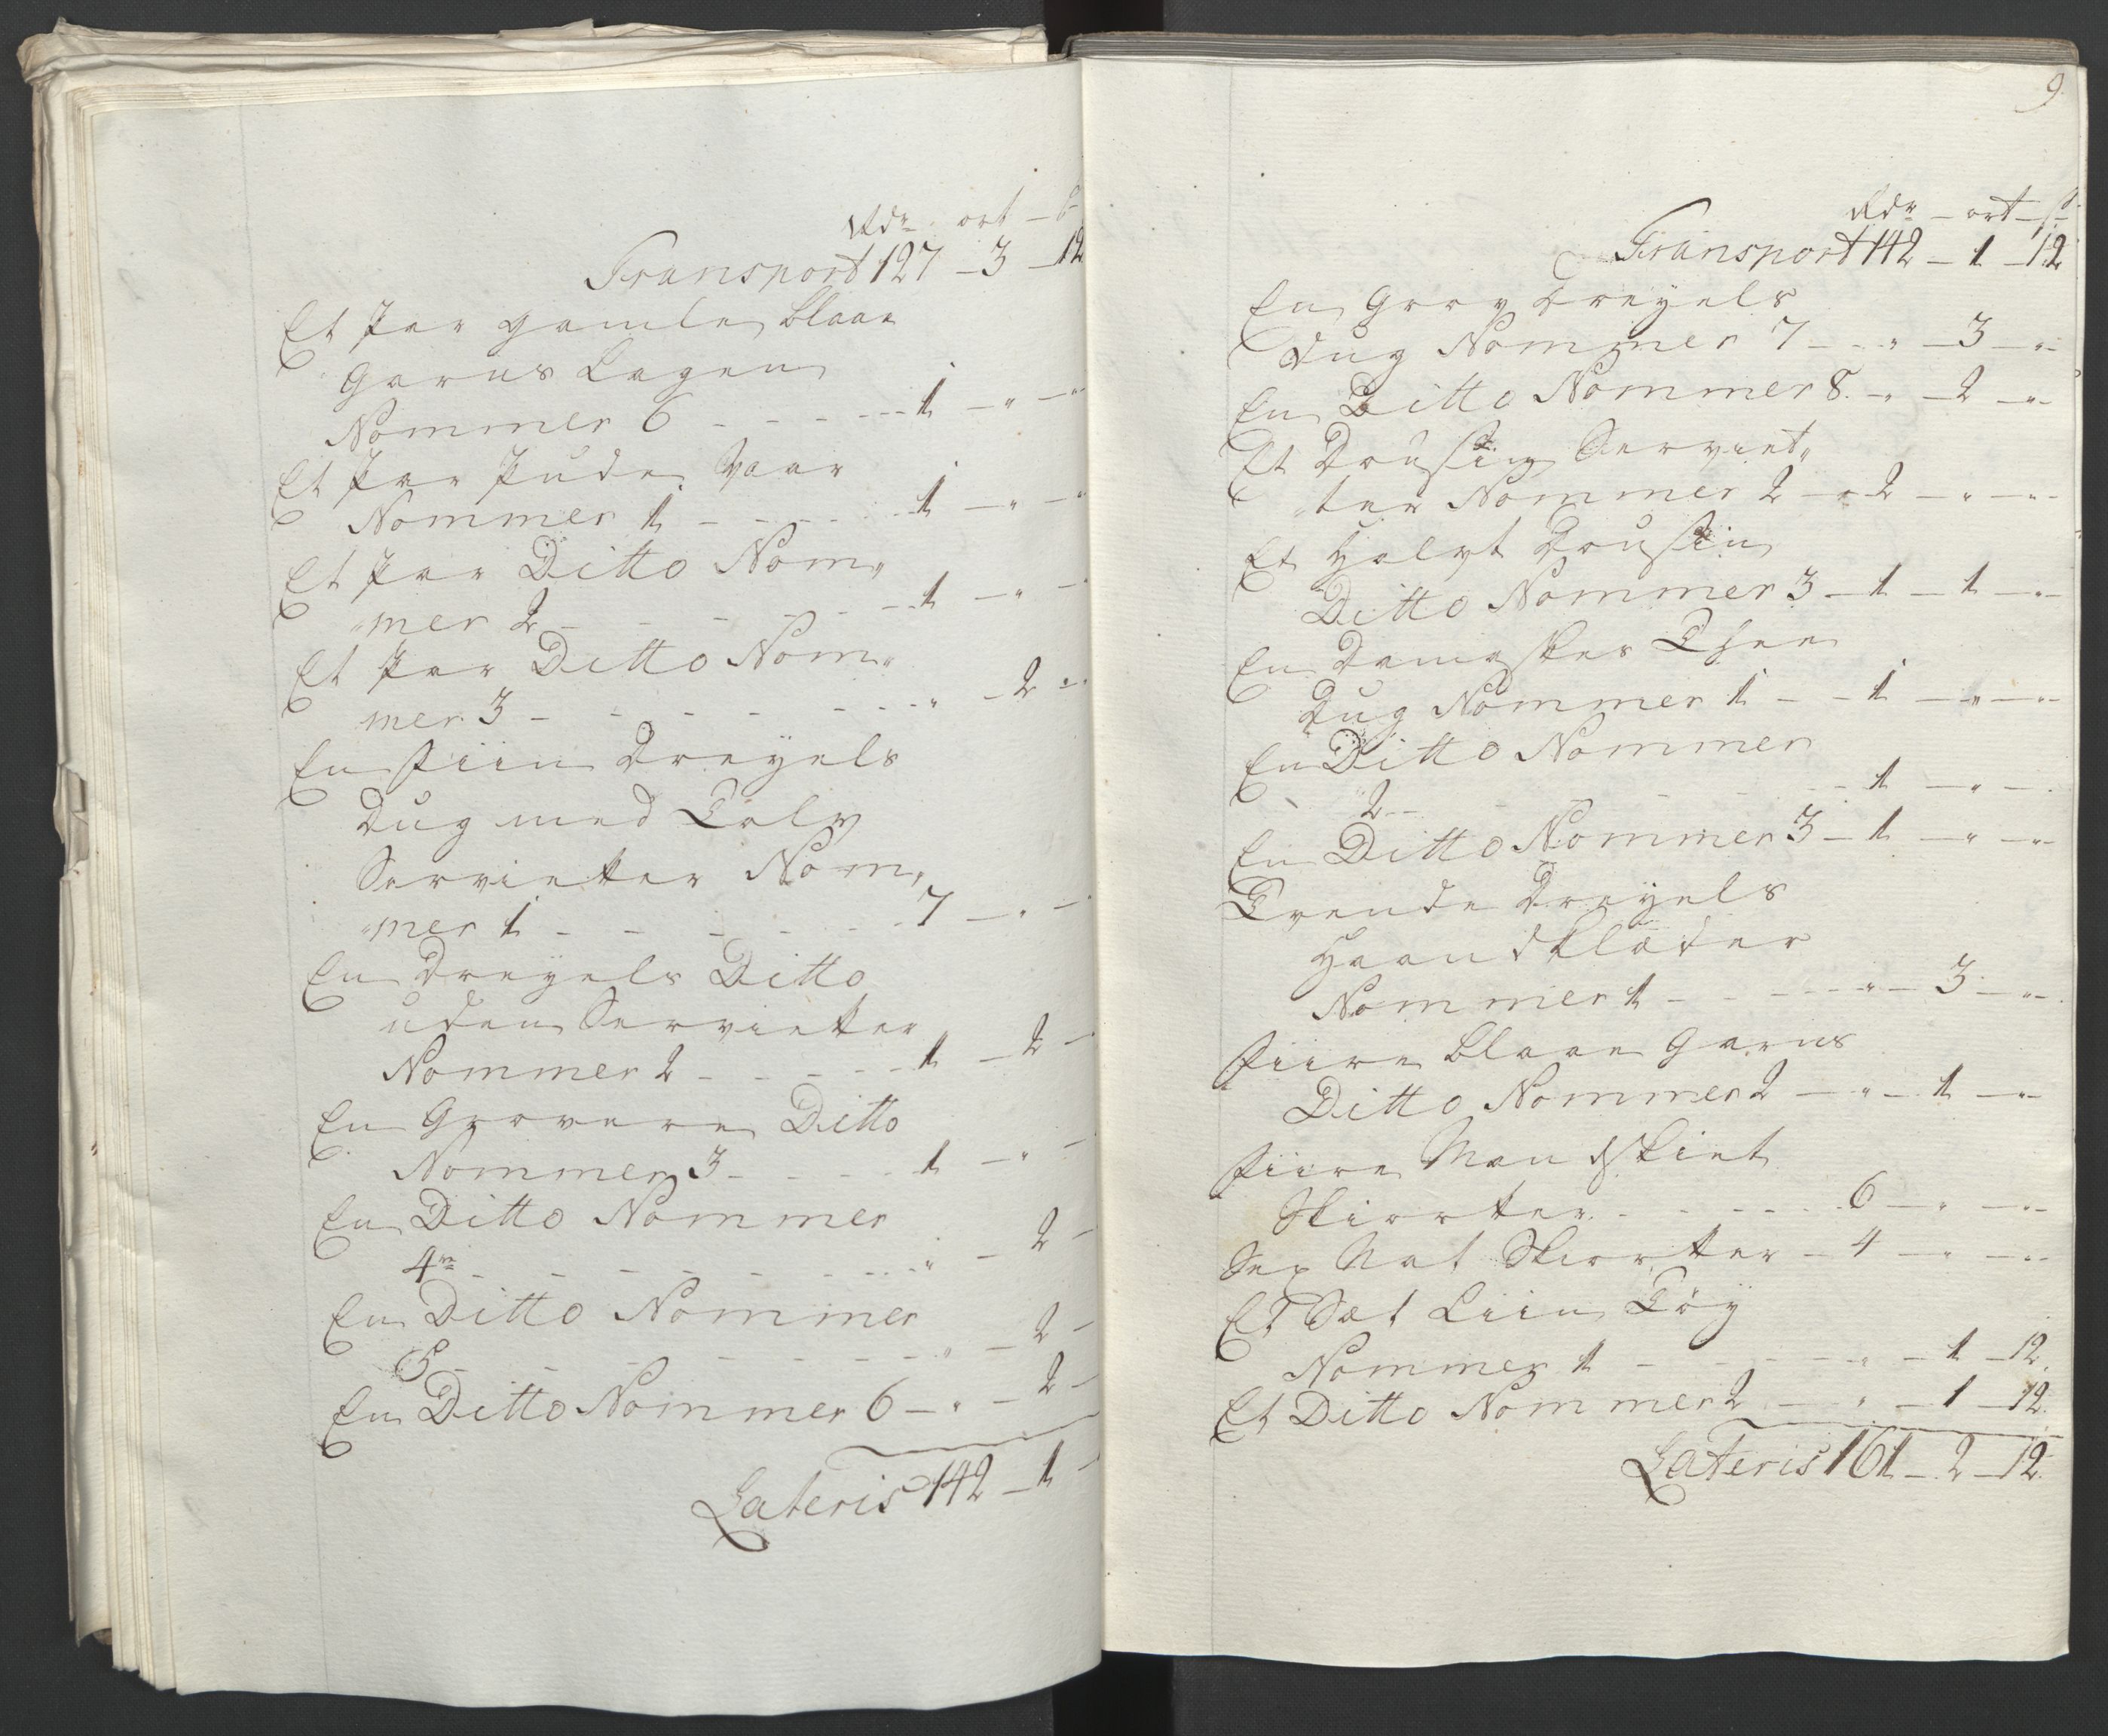 Rdr. ort – ß
Transport 127 – 3 – 12
Et Par gamle blaae
Garns Lagen
Nommer 6 – – – – – 1 – " – "
Et Par Pude Vaar
Nommer 1 – – – – – 1 – " – "
Et Par Ditto Nom„
„mer 2 – – – – – – 1 – " –
Et Par Ditto Nom„
mer 3 – – – – – – – " – 2 – "
En fiin Dreyels
Dug med Tolv
Servietter Nom„
„mer 1 – – – – – – 7 – " –
En Dreyels Ditto
uden Servietter
Nommer 2 – – – – – 1 – 2 –
En Grovere Ditto
Nommer 3 – – – – 1 – " –
En Ditto Nommer
4re – – – – – – – " – 2 –
En Ditto Nommer
5 – – – – – – – " – 2 –
En Ditto Nommer 6 – " – 2 –
Lateris 142 – 1 –
9.
Rdr – ort – ß
Transport 142 – 1 – 12
En Grov Dreyels
Dug Nommer 7 – – " – 3 – "
En Ditto Nommer 8. – " – 2 – "
Et Dousin Serviet„
„ter Nommer 2 – – 2 – " – "
Et Halvt Dousin
Ditto Nommer 3 – 1 – 1 – "
En Damaskes Thee
Dug Nommer 1 – – 1 – " – "
En Ditto Nommer
2 – – – – – – 1 – " – "
En Ditto Nommer 3 – 1 – " – "
Trende Dreyels
Haandklæder
Nommer 1 – – – – " – 3 – "
Fiire blaae Garns
Ditto Nommer 2 – " – 1 – "
Fiire Mandskiet
Skiorter – – – – – 6 – " – "
Sex Nat Skiorter – 4 – " – "
Et Sæt Liin Tøy
Nommer 1 – – – – " – 1 – 12.
Et Ditto Nommer 2 – " – 1 – 12.
Lateris 161 – 2 – 12.